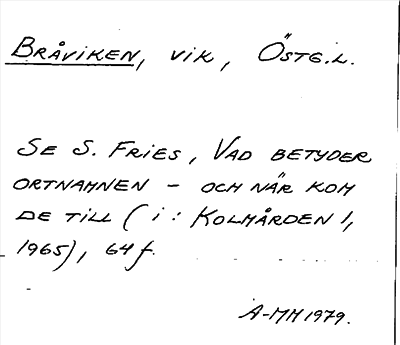 BRÅVIKEN, VIK, ÖSTG.L.
SE S. FRIES, VAD BETYDER
ORTNAMNEN – OCH NÄR KOM
DE TILL (i: KOLMÅRDEN 1,
1965), 64 f.
A-MM 1979.